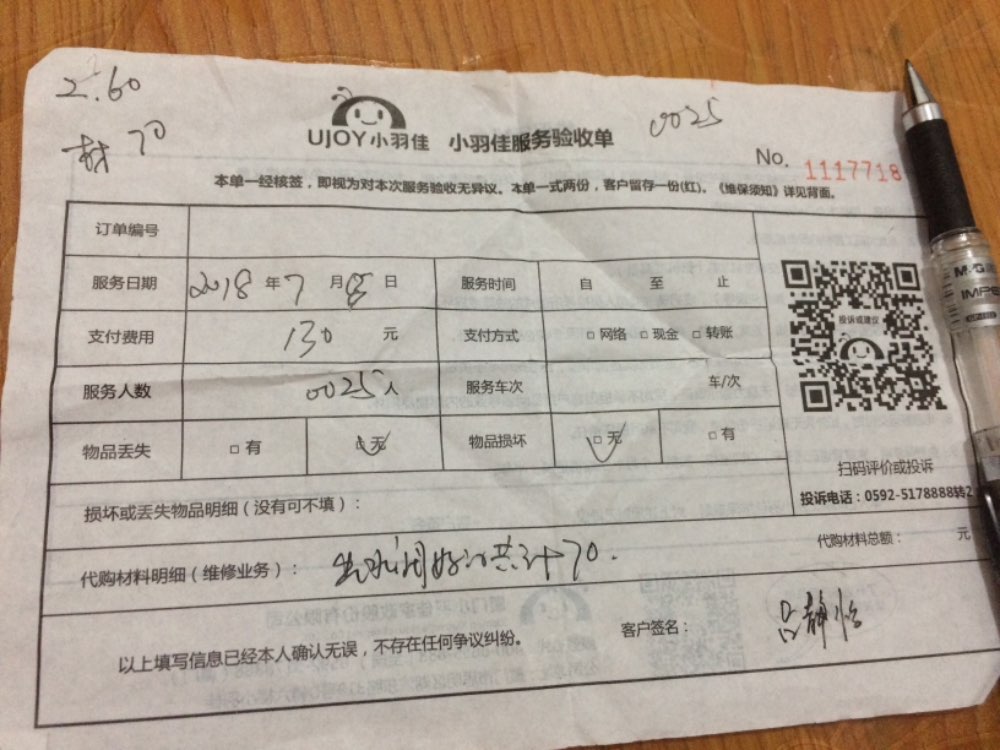 2.60
材 70
UJOY小羽佳 小羽佳服务验收单
0025
No. 1117718
本单一经核签，即视为对本次服务验收无异议。本单一式两份，客户留存一份(红)。《维保须知》详见背面。
订单编号
服务日期 2018 年 7 月 日 服务时间 自 至 止
支付费用 130 元 支付方式 □ 网络 □ 现金 □ 转账
服务人数 0025 人 服务车次 车/次
物品丢失 □ 有 □ 无 物品损坏 □ 无 □ 有
投诉或建议
扫码评价或投诉
投诉电话：0592-5178888转2
损坏或丢失物品明细（没有可不填）：
代购材料明细（维修业务）： 共计70.
代购材料总额： 元
以上填写信息已经本人确认无误，不存在任何争议纠纷。
客户签名： 吕静怡
M&G
IMPE